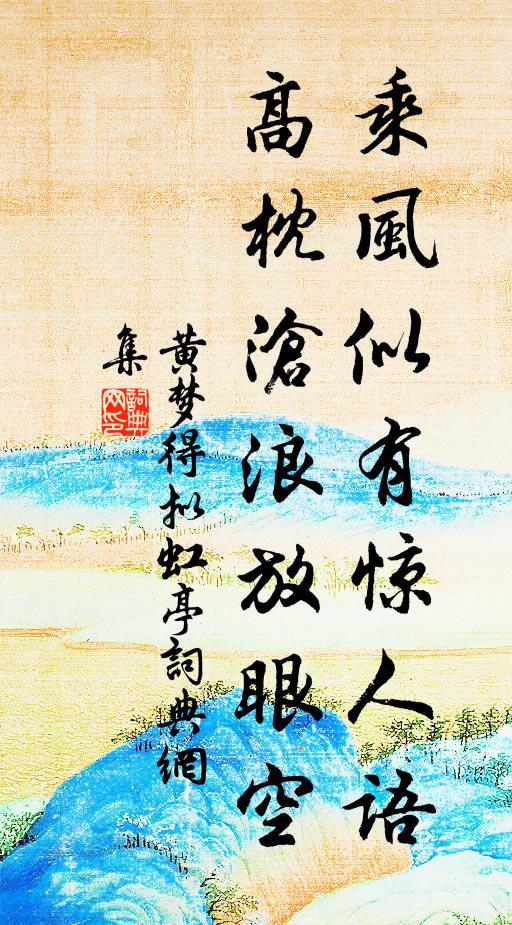 乘風似有惊人語
高枕滄浪放眼空
黄梦得拟虹亭詞典網
集
詞典網印